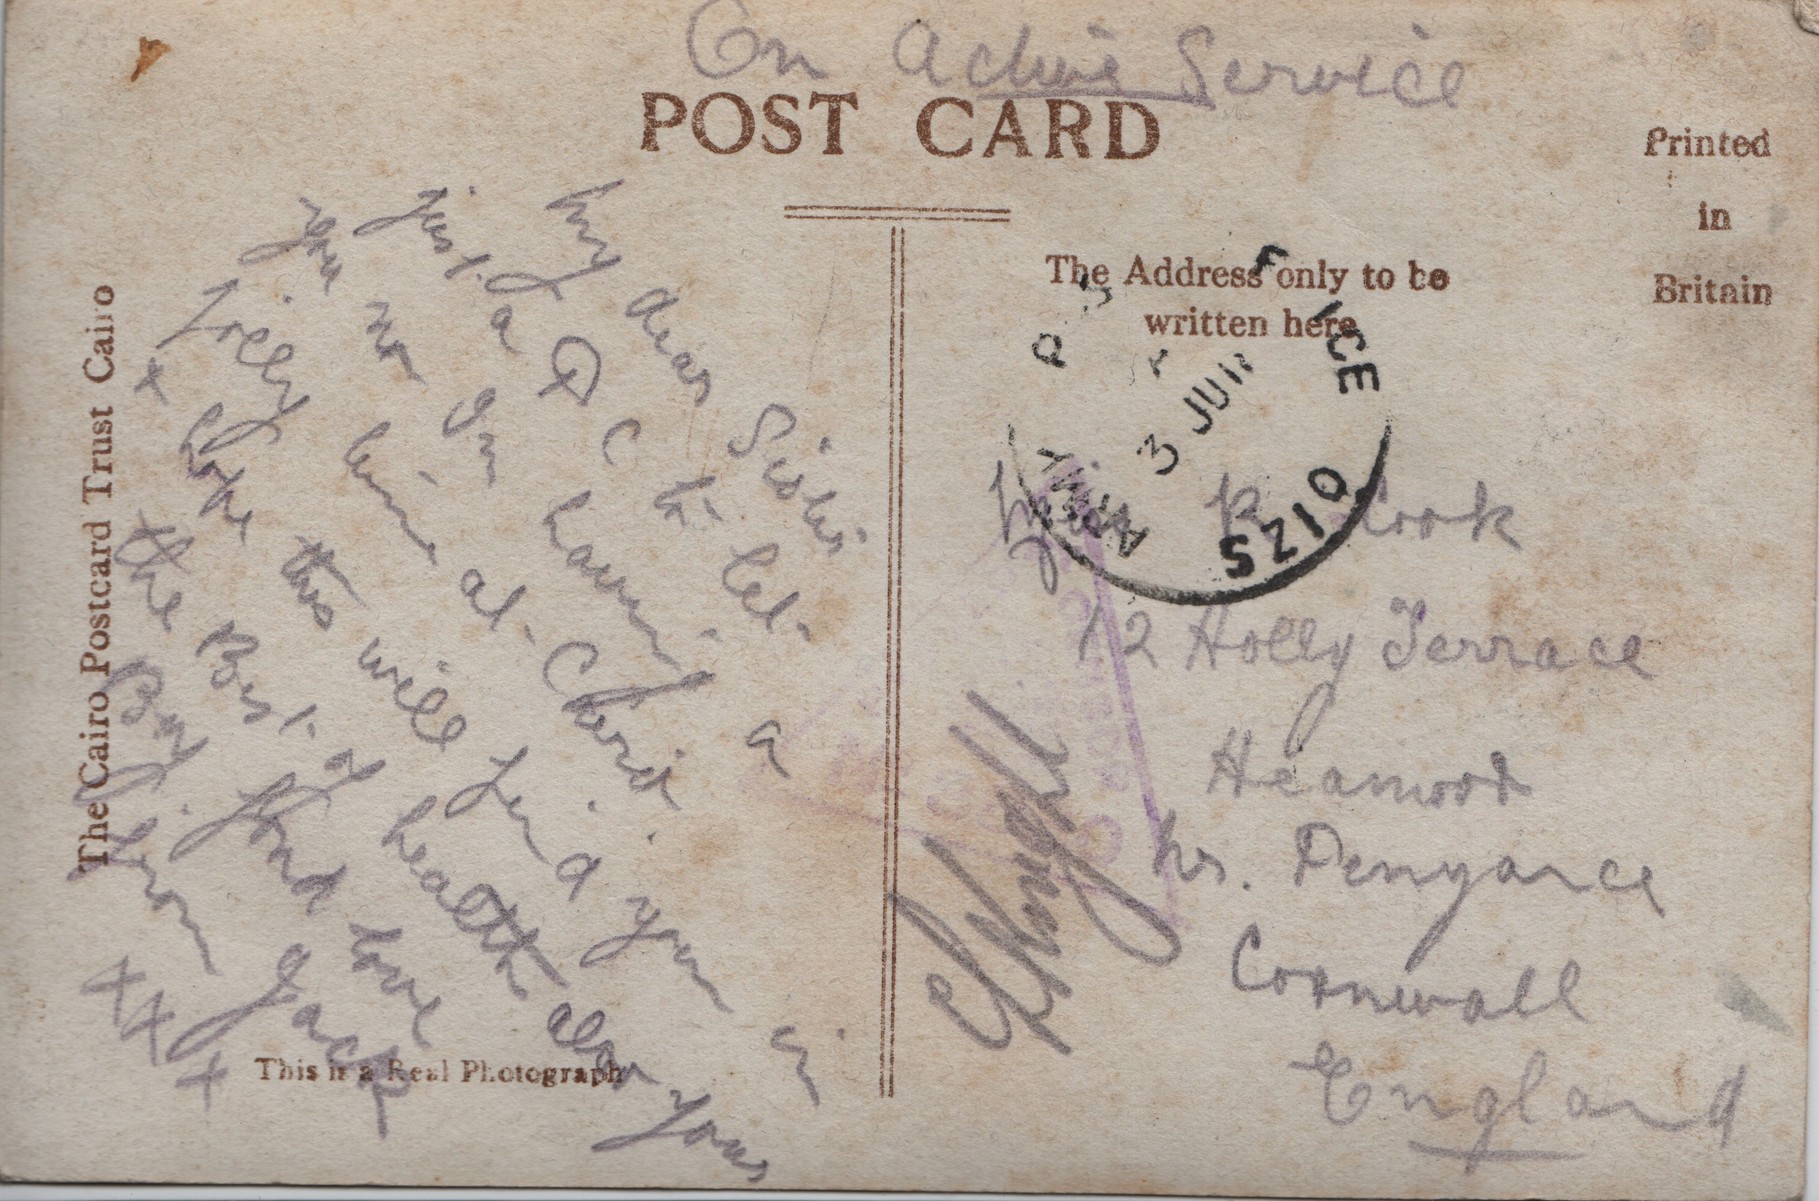 On Active Service
POST CARD
Printed
in
Britain
The Address only to be
written here
The Cairo Postcard Trust Cairo
This is a Real Photograph
My dear Sister
just a P C to let
you no Im having a
Jolly time at
& hope this will find you in
the Best of health also yours
By fond love
from Jack
X X X X
ARMY
3 JUN
SZ10
R Cook
12 Holly Terrace
Heamoor
Nr. Penzance
Cornwall
England